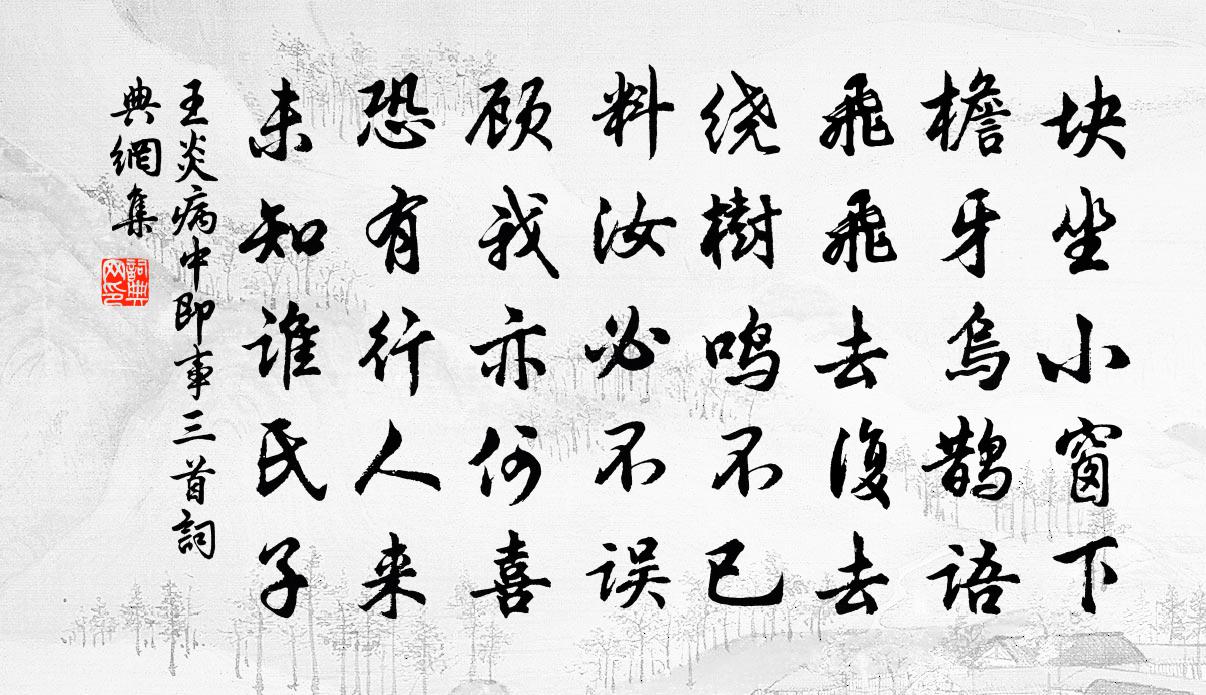 块坐小窗下
檐牙乌鹊语
飛飛去復去
绕樹鸣不已
料汝必不误
顾我亦何喜
恐有行人来
未知谁氏子
王炎病中即事三首詞
典網集
詞典
网印